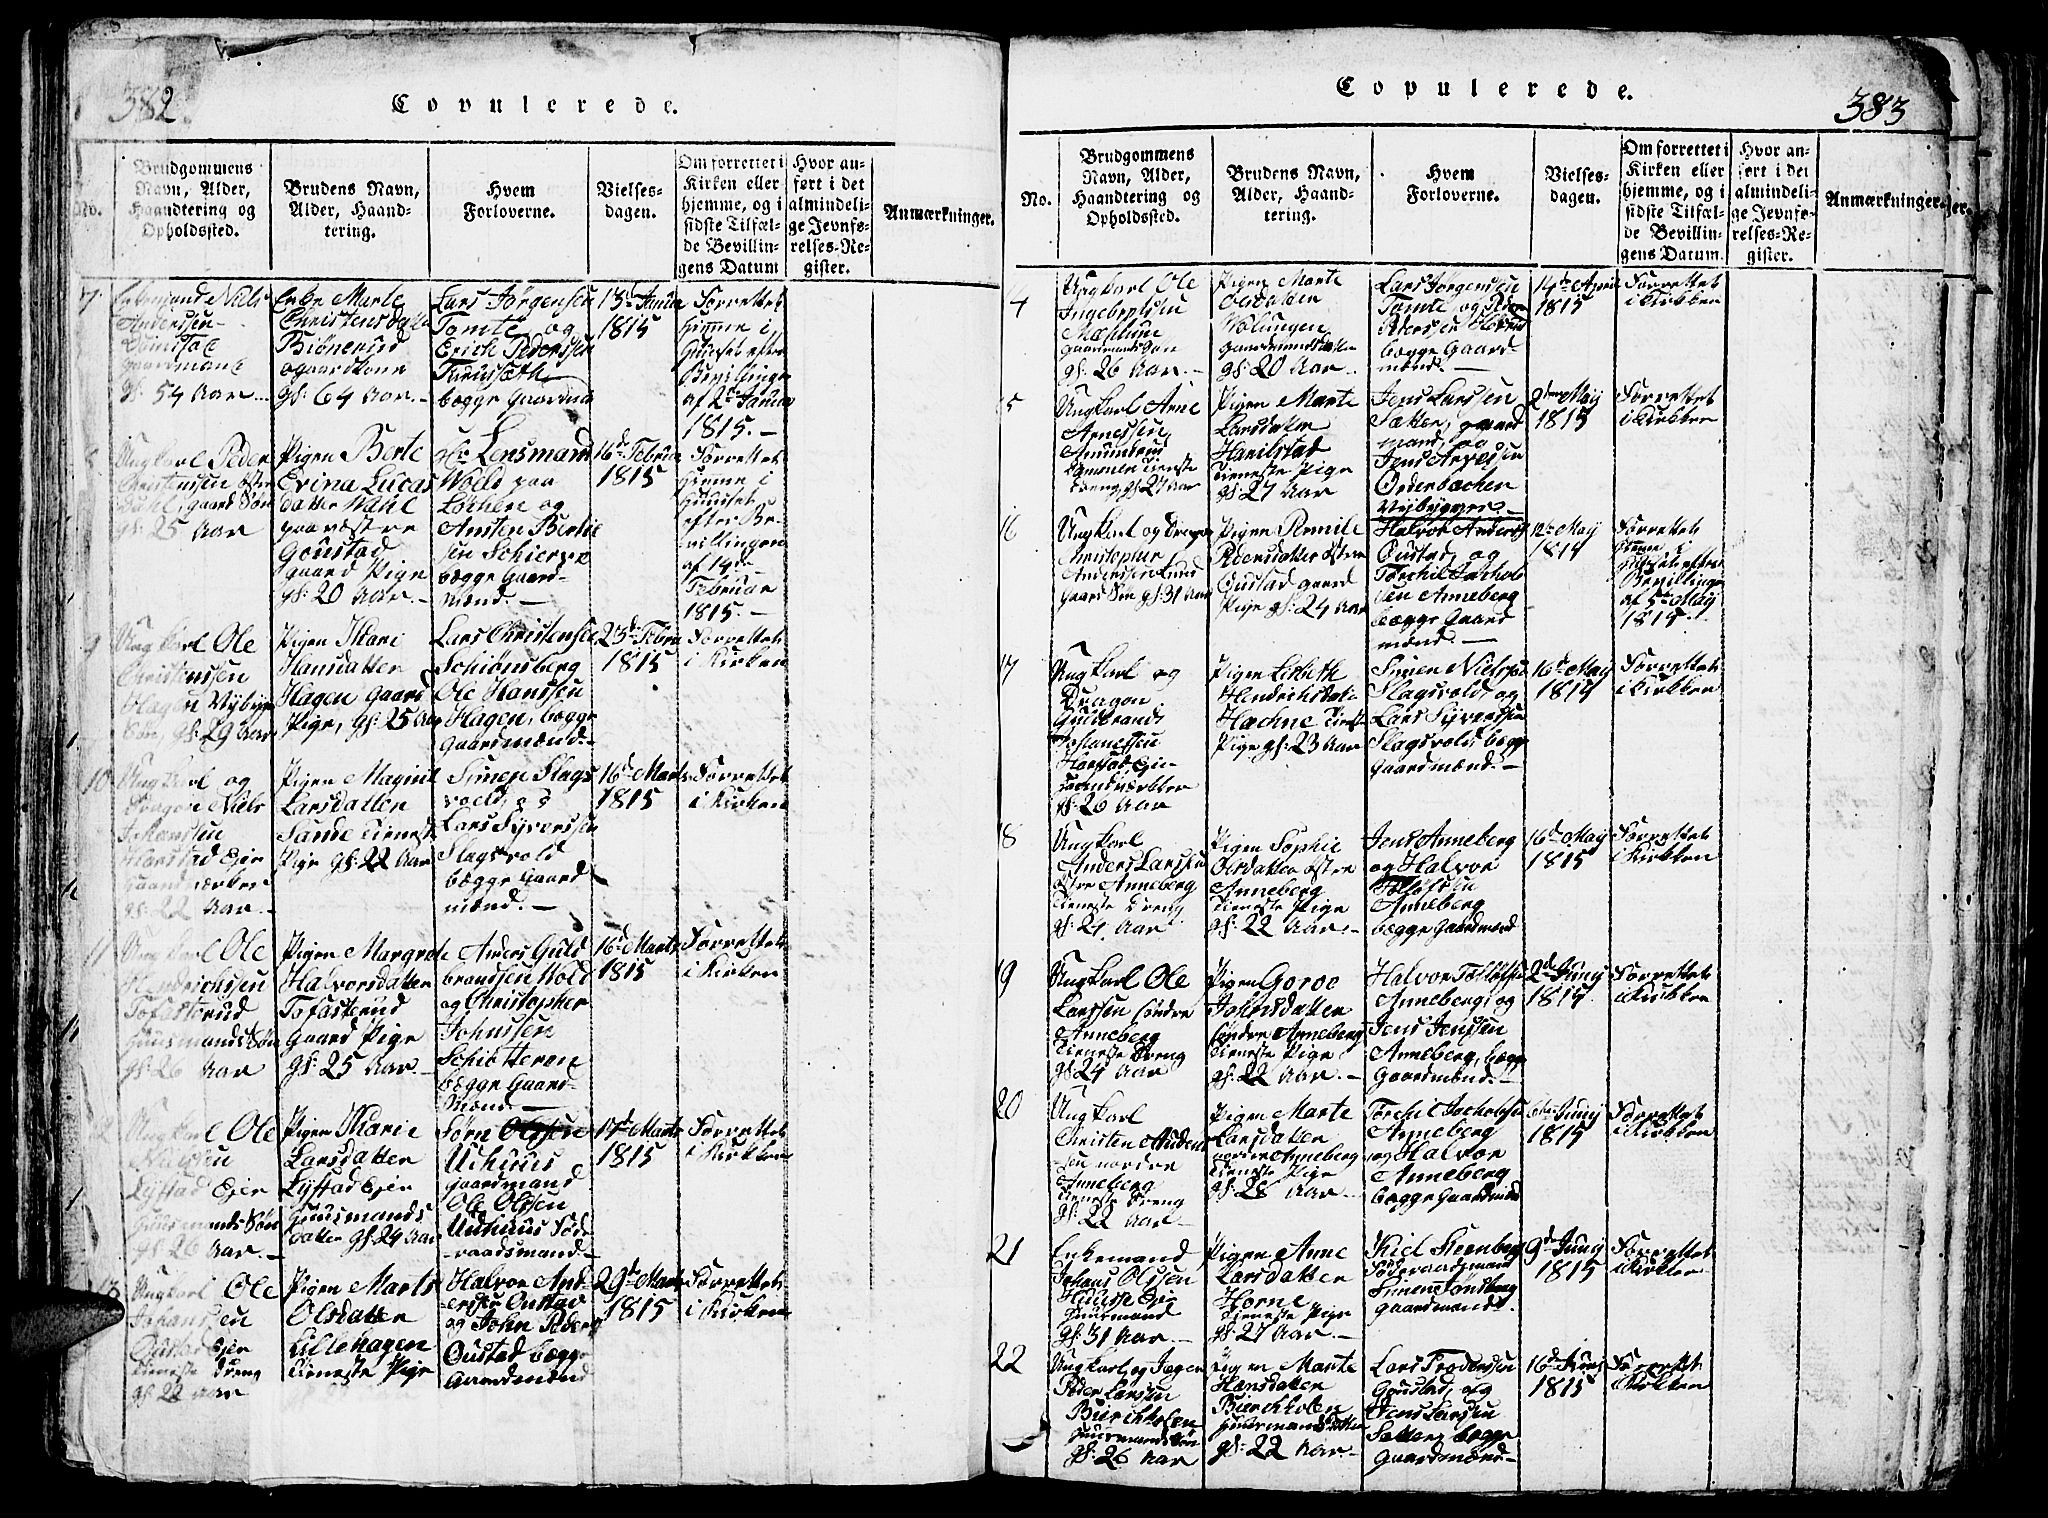 382.
Copulerede.
No.
Brudgommens
Navn, Alder,
Haandtering og
Opholdssted.
Brudens Navn,
Alder, Haand-
tering.
Hvem
Forloverne.
Vielses-
dagen.
Om forrettet i
Kirken eller
hjemme, og i
sidste Tilfæl-
de Bevillin-
gens Datum
Hvor an-
ført i det
almindeli-
ge Jevnfø-
relses-Re-
gister.
Anmærkninger.
7
Enkemand Niels
Anderssen
gaardmand
gl: 54 Aar
Enke Marte
Christensdatter
Biönerud
gaardkone
gl: 64 Aar.
Lars Jörgensen
Tomte og
Erich Pederssen
bægge Gaardmæ
13de Januar
1815
Forrettet
hjemme i
Huuset efter
Bevillingen
af 2de Januar
1815.
Ungkarl Peder
Christenssen Østre
Dahl, gaard Søn
gl: 25 Aar
Pigen Berte
Evina Lucas
datter Wahl
paa væstre
Goustad
gaard Pige
gl: 20 Aar.
Hr Lensmand
Wold paa
Löchen og
Amsten Bertil
sen Schierpe
bægge Gaard-
mænd.
16de Februar
1815
Forrettet
hjemme i
Huuset
efter Be-
villingen
af 14de
Februar
1815.
9
Ungkarl Ole
Christenssen
Hagen Nybyg
Søn, gl: 29 Aar
Pigen Mari
Hansdatter
Hagen gaard
Pige, gl: 25 Aar
Lars Christensen
Schiönsberg
Ole Hanssen
Hagen, bægge
gaardmænd.
23de Febru
1815
Forrettet
i Kirken
10
Ungkarl og
Dragon Niels
Johanssen
Harstad Ejer
Gaard værker
gl: 22 Aar.
Pigen Magnil
Larsdatter
Sande Tieneste
Pige gl: 22 Aar
Simen Slags
vold, og
Lars Syverssen
Slagsvold
bægge Gaard
mænd.
16de Marts
1815
Forrettet
i Kirken
11
Ungkarl Ole
Hendrichssen
Tofasterud
Huusmands Søn
gl: 26 Aar
Pigen Margret
Halvorsdatter
Tofasterud
Gaard Pige
gl: 25 Aar.
Anders Guld
brandssen Wold
og Christopher
Johnssen
Schiötteren
bægge Gaard-
mænd.
16de Marts
1815
Forrettet
i Kirken
Ungkarl Ole
Lystad Ejer
Huusmands Søn
gl: 26 Aar.
Pigen Marie
Larsdatter
Lystad Ejer
Huusmands
datter gl: 24 Aar
Sörn Olssen
Uchuus
gaardmand
Ole Olssen
Uchuus Föde-
raadsmand.
17de Marts
1815
Forrettet
i Kirken
13
Ungkarl Ole
Johanssen
Oustad Ejer
Tieneste Dreng
gl: 22 Aar
Pigen Marte
Olsdatter
Lillehagen
Tieneste Pige
Halvor And
erssen Oustad
og John Peders
Oustad bægge
Gaardmænd
29de Marts
1815
Forrettet
i Kirken
Copulerede.
383
No.
Brudgommens
Navn, Alder,
Haandtering og
Opholdssted.
Brudens Navn,
Alder, Haand-
tering.
Hvem
Forloverne.
Vielses-
dagen.
Om forrettet i
Kirken eller
hjemme, og i
sidste Tilfæl-
de Bevillin-
gens Datum.
Hvor an-
ført i det
almindeli-
ge Jevnfø-
relses-Re-
gister.
Anmærkninger.
14
Ungkarl Ole
Ingebretssen
Mælum
gaardmands Søn
gl: 26 Aar.
Pigen Marte
Olsdatter
Wolungen
gaardmandsdatter
gl: 20 Aar.
Lars Jörgenssen
Tomte og Peder
Pederssen
bægge Gaard-
mænd.
14de April
1815
Forrettet
i Kirken
15
Ungkarl Arne
Arnessen
Amundrud
Tieneste
Dreng, gl: 27 Aar
Pigen Marte
Larsdatter
Harilstad
Tieneste Pige
gl: 27 Aar
Jens Larssen
Sætter, gaard
mand, og
Jens Arvessen
Orderbechen
Nybygger.
2den Maij
1815
Forrettet
i Kirken
16
Ungkarl og Dragon
Christopher
Anderssen Lund
gaard Søn gl: 31 Aar
Pigen Pernile
Pedersdatter Østre
Oustad gaard
Pige gl: 24 Aar
Halvor Anders
Oustad, og
Torchil Jachob
sen Anneberg
bægge Gaard
mænd.
12te Maij
1815
Forrettet
hjemme i
Huuset efter
Bevillingen
af 5te Maij
1815.
17
Ungkarl og
Dragon
Guldbrand
Johanessen
Harstad Ejer
gl: 26 Aar
Pigen Lisbeth
Hendrichsdatter
Hachne Tieneste
Pige gl: 23 Aar
Simen Nielssen
Slagsvold, og
Lars Syverssen
Slagsvold bægge
gaardmænd.
16de Maij
1815
Forrettet
i Kirken
18
Ungkarl
Anders Larssen
Østre Anneberg
Tieneste Dreng
gl: 24. Aar
Pigen Sophie
Olsdatter Østre
Anneberg
Tieneste Pige
gl: 22 Aar.
Jens Anneberg
og Halvor
Tollöfssen
Anneberg
bægge Gaardmænd
16de Maij
1815
Forrettet
i Kirken
19
Ungkarl Ole
Larssen söndre
Anneberg
Tieneste Dreng
gl: 24 Aar
Pigen Goroe
Johnsdatter
söndre Anneberg
Tieneste Pige
gl: 22 Aar.
Halvor Tollöfssen
Anneberg, og
Jens Jenssen
Anneberg, bægge
Gaardmænd.
2de Junij
1815
Forrettet
i Kirken
20
Ungkarl
Christen Anders
sen nordre
Anneberg
Tieneste Dreng
gl: 22 Aar.
Pigen Marte
Larsdatter
nordre Anneberg
Tieneste Pige
gl: 28 Aar.
Torchil Jachobssen
Anneberg
og Halvor
Anneberg
bægge Gaardmænd
6te Junij
1815
Forrettet
i Kirken
21
Enkemand
Johans Olssen
Ejer
Huusmand
gl: 31 Aar.
Pigen Anne
Larsdatter
Horne
Tieneste Pige
gl: 27 Aar.
Kiel Steenberg
Föderaadsmand
Simen Tönsberg
gaardmænd.
9de Junij
1815
Forrettet
i Kirken
22
Ungkarl og Jæger
Peder Larssen
Bierchholen
Huusmands Søn
gl: 26 Aar
Pigen Marte
Hansdatter
Bierchholen
Huusmandsdatter
gl: 22 Aar.
Lars Troderssen
Goustad, og
Jens Larssen
Sætter bægge
Gaardmænd
16de Junij
1815
Forrettet
i Kirken